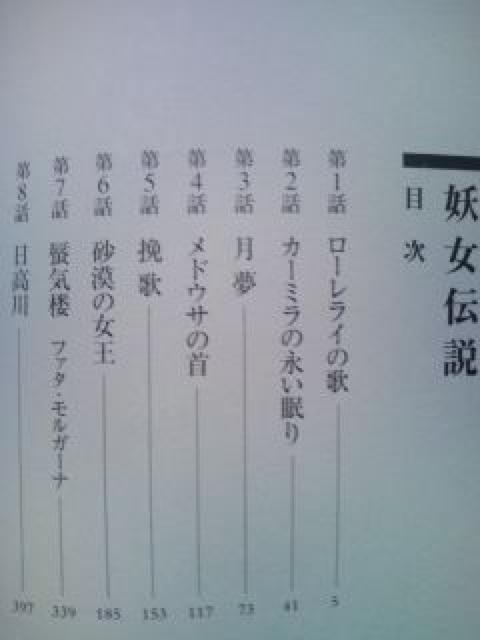 妖女伝説
目次
第1話 ローレライの歌 5
第2話 カーミラの永い眠り 41
第3話 月夢 73
第4話 メドウサの首 117
第5話 挽歌 153
第6話 砂漠の女王 185
第7話 蜃気楼 ファタ・モルガーナ 339
第8話 日高川 397